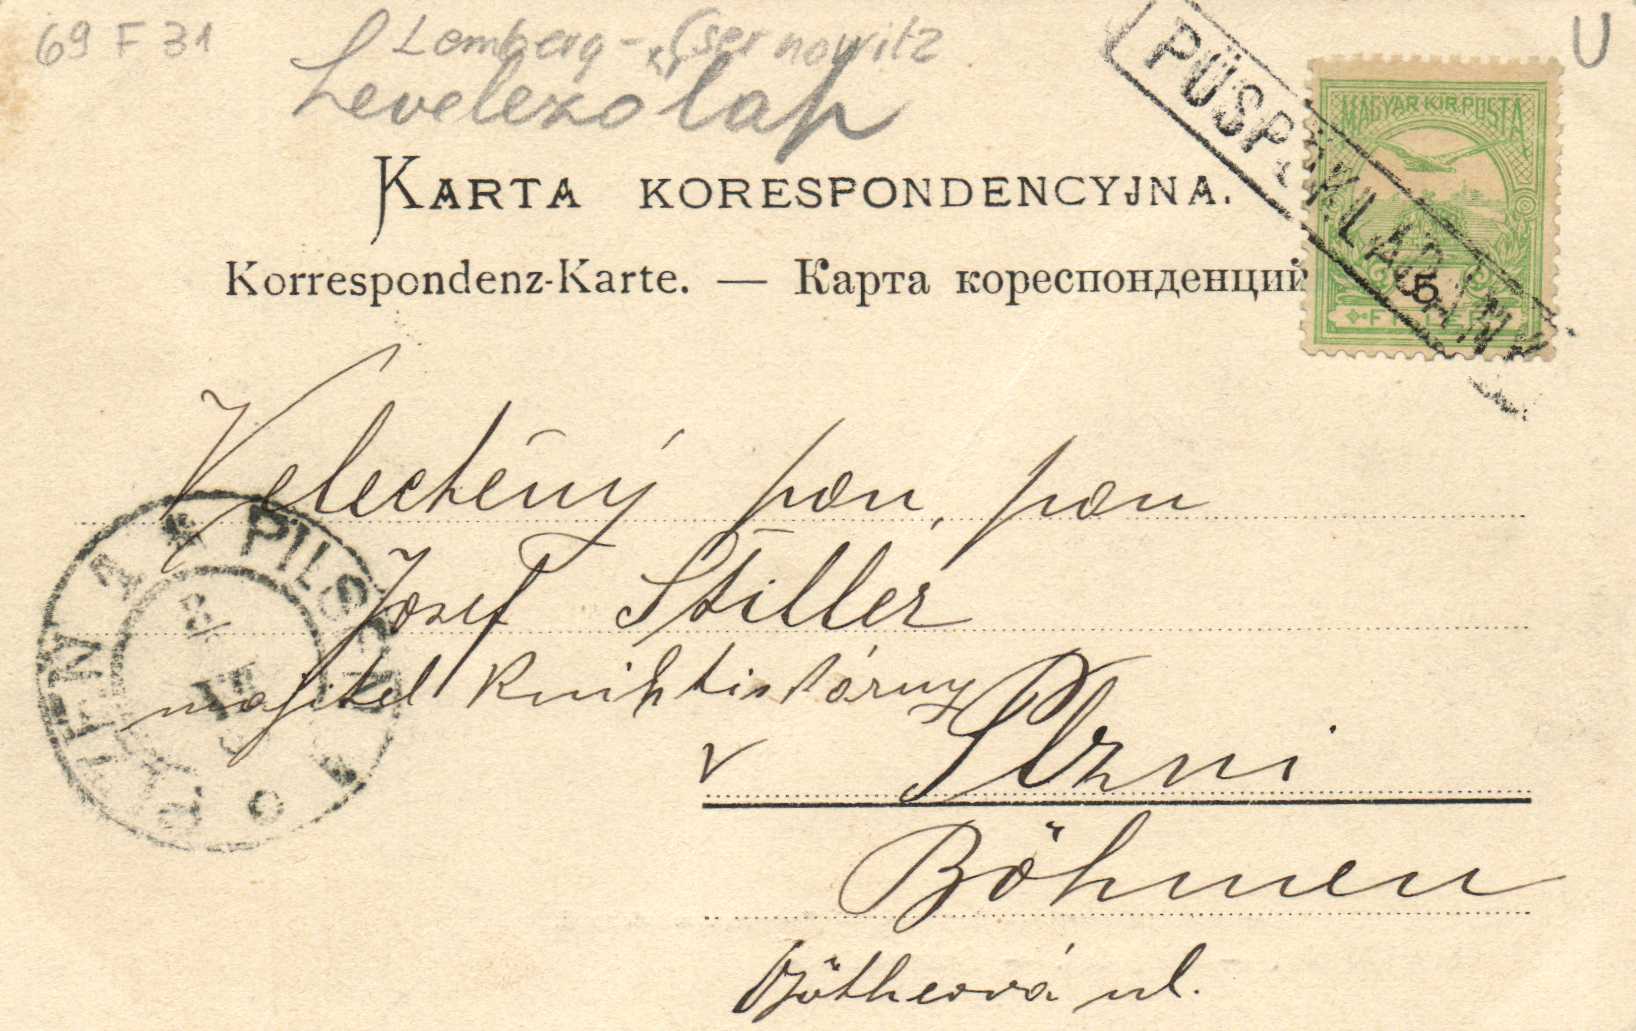 69 F 31
Lemberg - Csernowitz
U
Levelezo lap
PÜSPÖKLADÁNY
MAGYAR KIR. POSTA
5
FILLÉR
KARTA KORESPONDENCYJNA.
Korrespondenz-Karte. — Карта кореспонденций
Velectěný pan, pan
Josef Stiller
majitel knihtiskárny
v Plzni
Böhmen
Götheová ul.
PILSEN
PLZEŇ